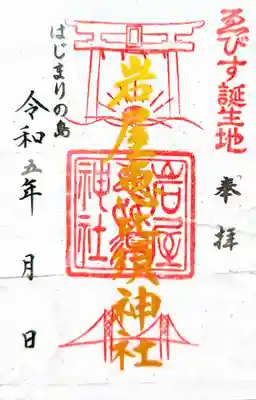 ゑびす誕生地
奉拝
岩屋恵比須神社
岩屋
神社
はじまりの島
令和五年 月 日